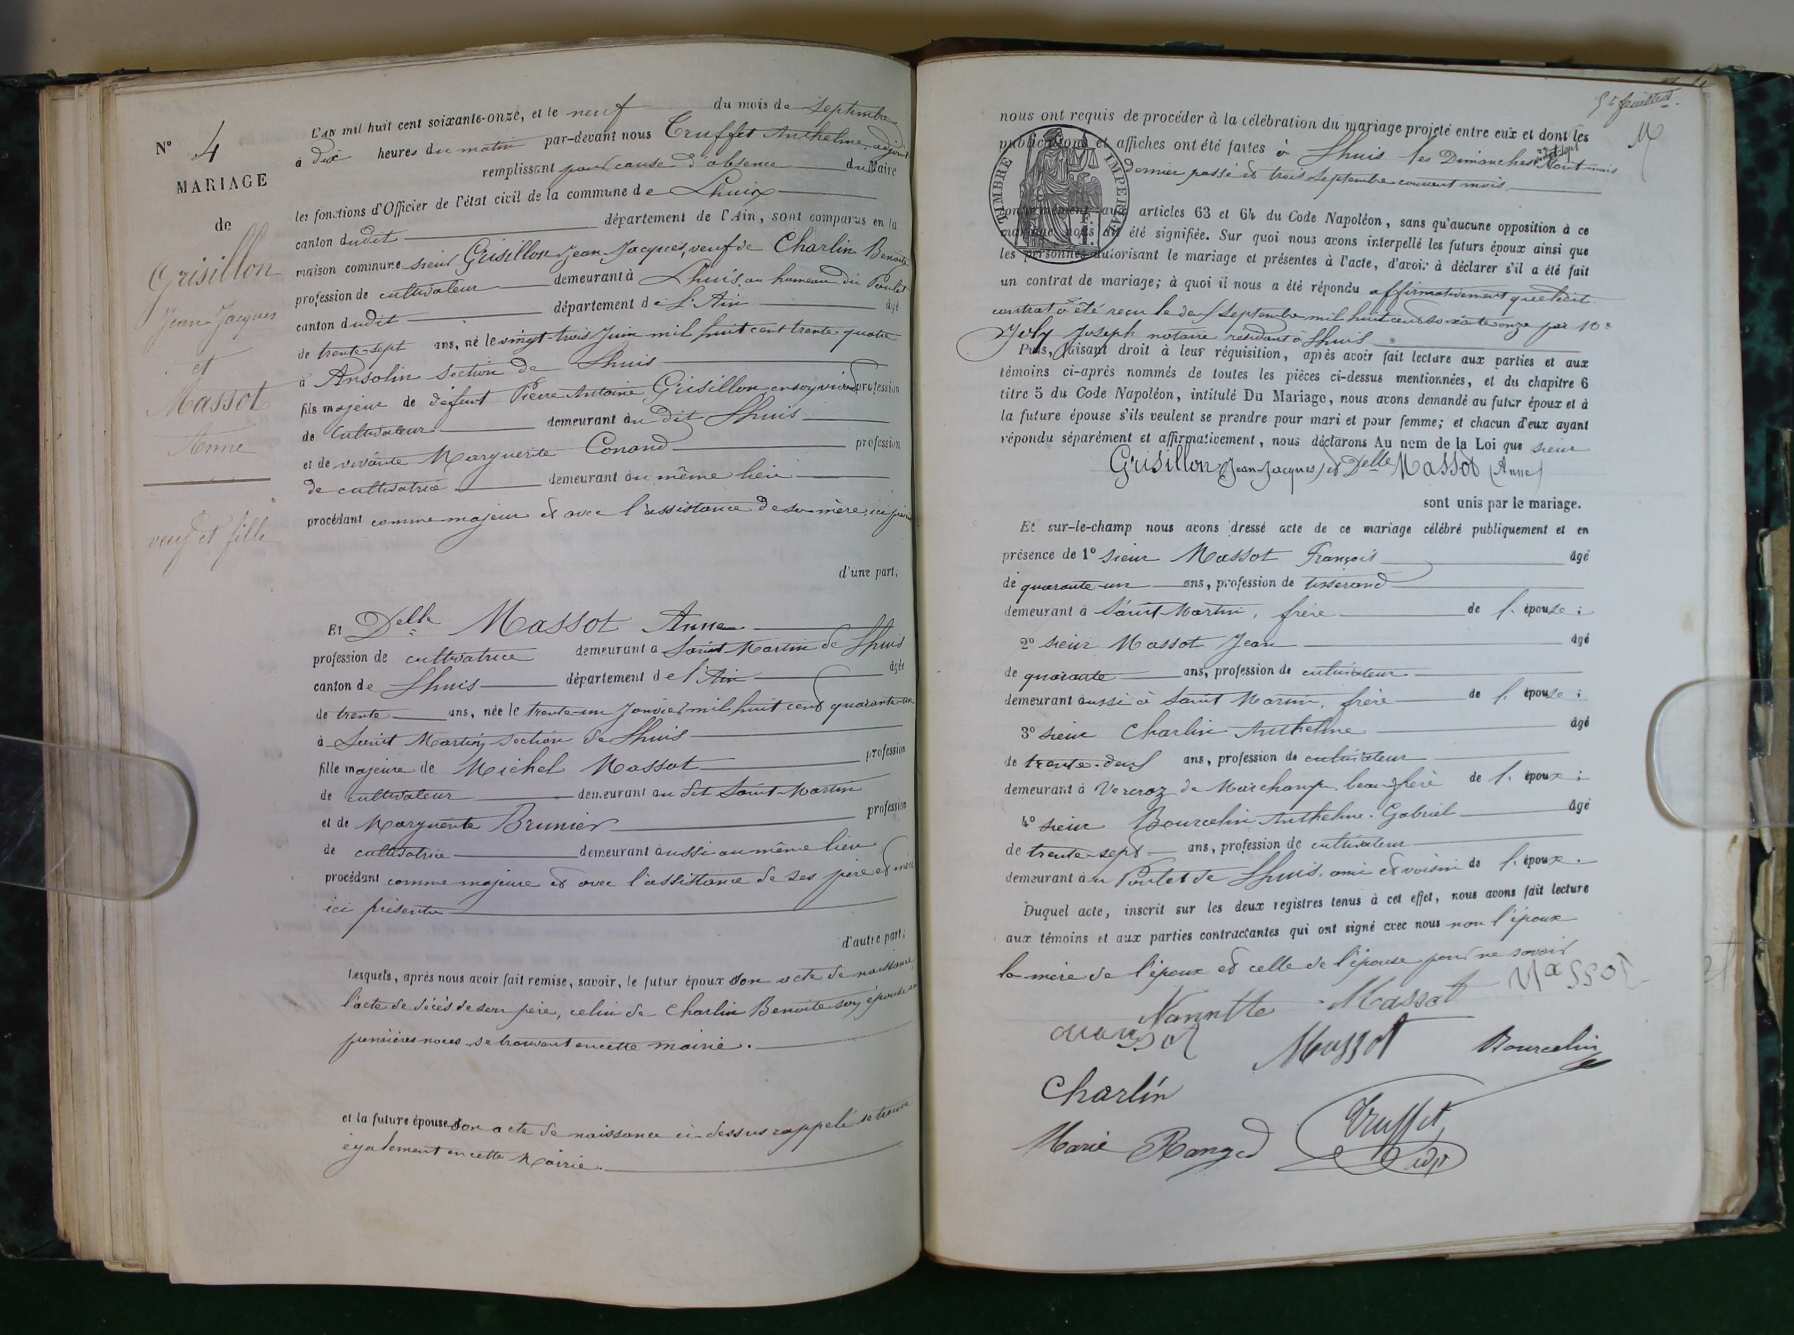 N° 4
MARIAGE
de
Grisillon
Jean-Jacques
et
Massot
Anne
veuf et fille
L'an mil huit cent soixante-onze, et le neuf du mois de Septembre
à dix heures du matin par-devant nous Truffet Anthelme adjoint
remplissant pour cause d'absence du Maire
les fonctions d'Officier de l'état civil de la commune de Lhuis
canton dudit département de l'Ain, sont comparus en la
maison commune sieur Grisillon Jean Jacques, veuf de Charlin Benoite
profession de cultivateur demeurant à Lhuis, au hameau du Poulet
canton dudit département de l'Ain âgé
de trente-sept ans, né le vingt trois Juin mil huit cent trente quatre
à Ansolin section de Lhuis
fils majeur de défunt Pierre Antoine Grisillon en son vivant profession
de cultivateur demeurant au dit Lhuis
et de vivante Marguerite Conand profession
de cultivatrice demeurant au même lieu
procédant comme majeur et avec l'assistance de sa mère, ici
d'une part,
Et Delle Massot Anne
profession de cultivatrice demeurant à Saint Martin de Lhuis
canton de Lhuis département de l'Ain âgée
de trente ans, née le trente-un Janvier mil huit cent quarante-un
à Saint Martin, section de Lhuis
fille majeure de Michel Massot profession
de cultivateur demeurant au dit Saint-Martin
et de Marguerite Brunier profession
de cultivatrice demeurant aussi au même lieu
procédant comme majeure et avec l'assistance de ses père et mère
ici présents
d'autre part;
Lesquels, après nous avoir fait remise, savoir, le futur époux son acte de naissance,
l'acte de décès de son père, celui de Charlin Benoite son épouse en
premières noces se trouvant en cette mairie.
et la future épouse son acte de naissance ci-dessus rappelé se trouve
également en cette Mairie.
5e feuillet
nous ont requis de procéder à la célébration du mariage projeté entre eux et dont les
publications et affiches ont été faites à Lhuis les Dimanches Août mois
dernier passé et trois Septembre courant mois
TIMBRE IMPERIAL
1 F.
conformément aux articles 63 et 64 du Code Napoléon, sans qu'aucune opposition à ce
mariage nous ait été signifiée. Sur quoi nous avons interpellé les futurs époux ainsi que
les personnes autorisant le mariage et présentes à l'acte, d'avoir à déclarer s'il a été fait
un contrat de mariage; à quoi il nous a été répondu affirmativement que ledit
contrat a été reçu le deux Septembre mil huit cent soixante onze par Me
Joly Joseph notaire résidant à Lhuis
Puis, faisant droit à leur réquisition, après avoir fait lecture aux parties et aux
témoins ci-après nommés de toutes les pièces ci-dessus mentionnées, et du chapitre 6
titre 5 du Code Napoléon, intitulé Du Mariage, nous avons demandé au futur époux et à
la future épouse s'ils veulent se prendre pour mari et pour femme; et chacun d'eux ayant
répondu séparément et affirmativement, nous déclarons Au nom de la Loi que sieur
Grisillon (Jean-Jacques) et Delle Massot (Anne)
sont unis par le mariage.
Et sur-le-champ nous avons dressé acte de ce mariage célébré publiquement et en
présence de 1° sieur Massot François âgé
de quarante-un ans, profession de tisserand
demeurant à Saint-Martin, frère de l'épouse;
2° sieur Massot Jean âgé
de quarante ans, profession de cultivateur
demeurant aussi à Saint Martin, frère de l'épouse;
3° sieur Charlin Anthelme âgé
de trente-deux ans, profession de cultivateur
demeurant à Vercraz de Marchamp beau-frère de l'époux;
4° sieur Bourcelin Anthelme-Gabriel âgé
de trente-sept ans, profession de cultivateur
demeurant au Poulet de Lhuis, ami et voisin de l'époux.
Duquel acte, inscrit sur les deux registres tenus à cet effet, nous avons fait lecture
aux témoins et aux parties contractantes qui ont signé avec nous non l'époux
la mère de l'époux et celle de l'épouse pour ne savoir
Nannette Massot Massot
Massot Bourcelin
Charlin
Truffet
adjt
Marie